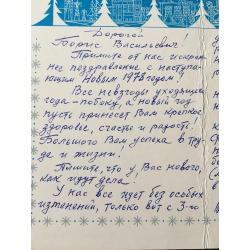 Дорогой
Борис Васильевич!
Примите от нас искрен-
нее поздравление с наступа-
ющим Новым 1975 годом!
Все невзгоды уходящего
года - побоку, а новый год
пусть принесет Вам крепкое
здоровье, счастье и радость!
Большого Вам успеха в тру-
де и жизни!
Пишите, что у Вас нового,
как идут дела.
У нас все идет без особых
изменений, только вот с 3-го